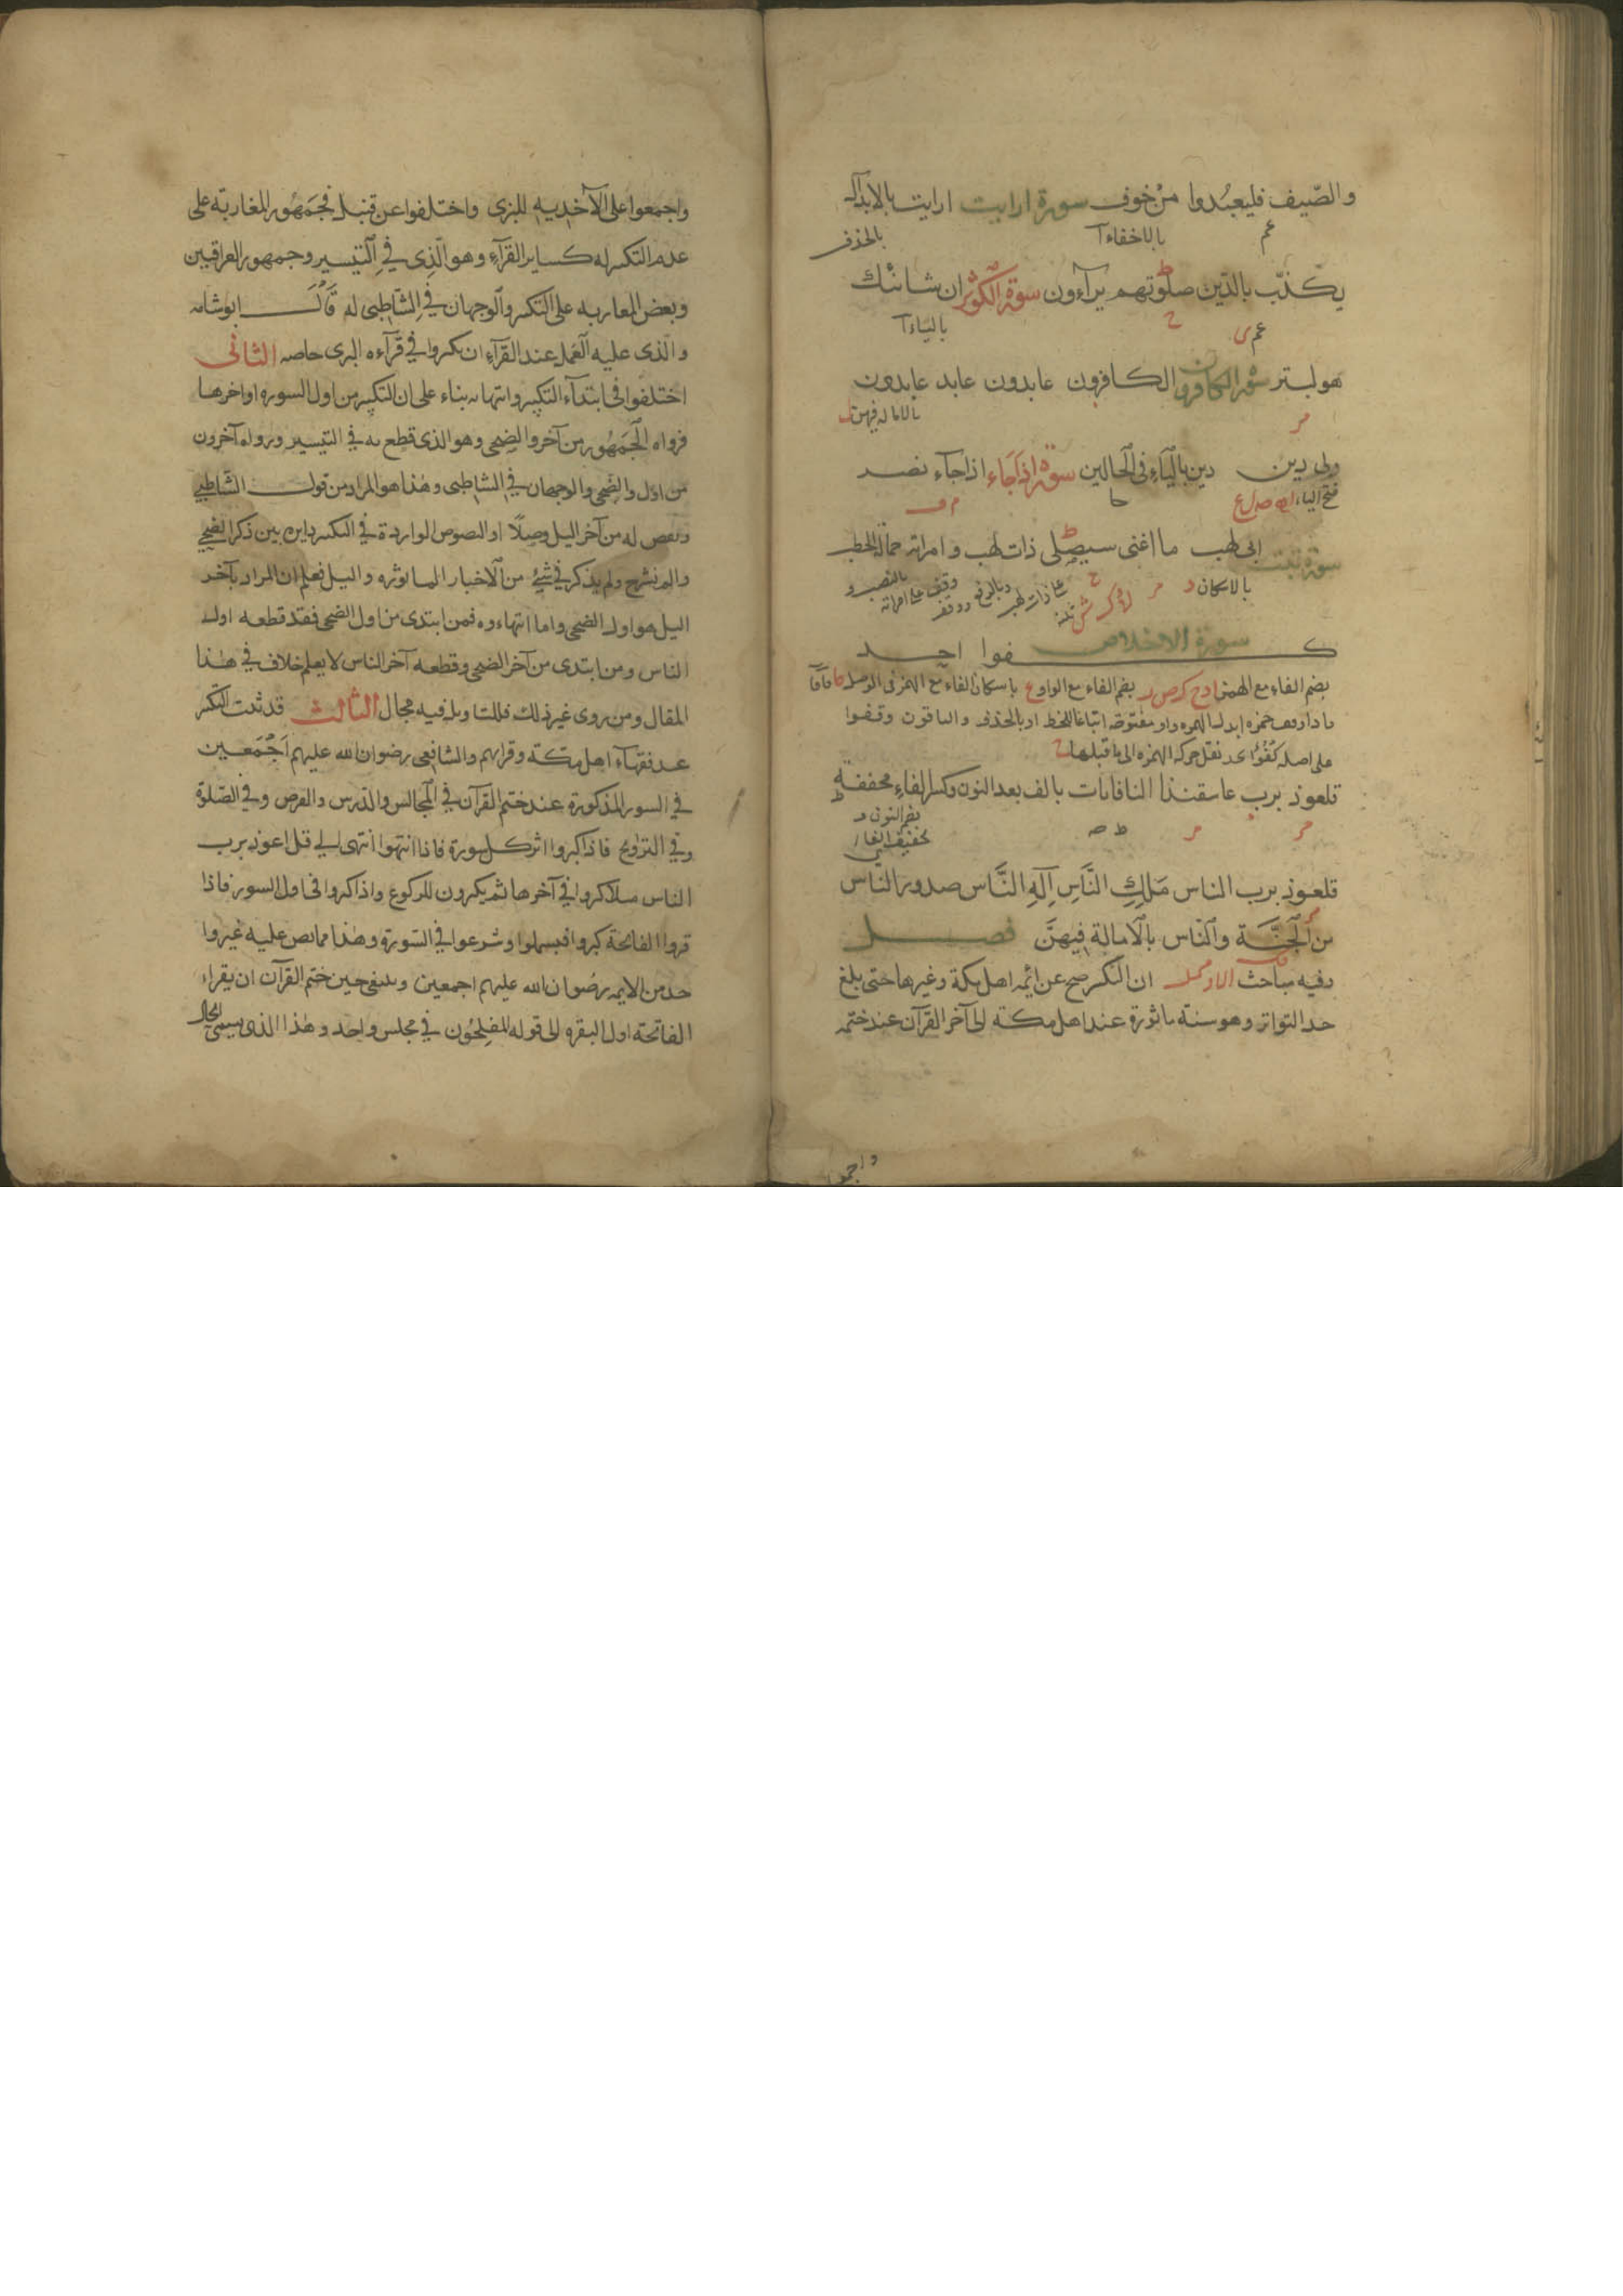 والصّيف فليعبُدوا مِنْ خوف سورة ارايت ارايت بالابدال
عم بالاخفاء آ بالحذف
يكذّب بالدّين صلوتهم يرآءون سورة الكوثر ان شانئك
عم ى ح بالياء آ
هو لبتر سورة الكافرون الكافرون عابدون عابد عابدون
م بالاماله فيهن ل
ولى دين دين بالياءِ فى الحالين سورة اذا جَاء اذا جآء نصر
فتح الياء م ف
سورة تبت ابى لهب ما اغنى سيصلى ذات لهب وامراته حمالة الحطب
بالاسكان د م ح على ذات لهب وبالرفع وقف على امراته بالنصب و
سورة الاخلاص
كفوا احد
بضم الفاء مع الهمز بضم الفاء مع الواو ع باسكان الفاء مع الهمز فى الوصل
اذا وقف حمزه ابدل الهمزه واو مفتوحة اتباعا للخط او بالحذف والباقون وقفوا
على اصله كُفُؤًا نقل حركة الهمزه الى ما قبلها
قلعوذ برب غاسقنذا النافاثات بالف بعد النون وكسر الفاءِ مخففة
م م ط صه بضم النون و
تخفيف الفا
قلعوذ برب الناس مَلِكِ النَّاسِ اِلَهِ النَّاس صدور الناس
من اَلْجِنَّة وَالنّاس بالامالة فيهنّ فصل
وفيه مباحث الاول ان التكبير صح عن ائمة اهل مكة وغيرها حتى بلغ
حد التواتر وهو سنة ماثورة عند اهل مكة الى آخر القرآن عند ختمه
واجمعوا
واجمعوا على الاخذ به للبزى واختلفوا عن قنبل فجمهور المغاربة على
عدم التكبير له كساير القرآءِ وهو الّذى فى التيسير وجمهور العراقيين
وبعض المغاربه على التكبير والوجهان فى الشاطبى له قَالَ ابو شامه
والذى عليه العَمل عند القرآءِ ان يكبروا فى قرآءه البزى خاصه الثانى
اختلفوا فى ابتدآء التكبير وانتهائه بناء على ان التكبير من اول السوره او اخرها
فرواه الْجَمْهُور من آخر والضحى وهو الذى قطع به فى التيسير ورواه آخرون
من اول والضحى والوجهان فى الشاطبى وهذا هو المراد من قول الشاطبى
وبعض له من آخر اليل وصلًا اذ النصوص الواردة فى التكبير دايره بين ذكر الضحى
والم نشرح ولم يذكر فى شئ من الاخبار الماثوره واليل فعلم ان المراد بآخر
اليل هو اول الضحى واما انتهاءوه فمن ابتدى من اول الضحى فقد قطعه اول
الناس ومن ابتدى من آخر الضحى وقطعه آخر الناس لا يعلم خلاف فى هذا
المقال ومن روى غير ذلك فللتاويل فيه مجال الثالث قد ثبت التكبير
عند فقهآء اهل مكة وقرايهم والشافعى رضوان الله عليهم اَجْمَعين
فى السور المذكورة عند ختم القرآن فى المجالس والدرس والعرض وفى الصّلوة
وفى التراويح فاذا كبروا اثر كل سورة فاذا انتهوا انتهى الى قل اعوذ برب
الناس مثلا كبروا فى آخرها ثم يكبرون للركوع واذا كبروا فى اول السور فاذا
قروا الفاتحة كبروا فبسملوا وشرعوا فى السّورة وهذا مما نص عليه غيروا
حد من الايمه رضوان الله عليهم اجمعين وينبغى حين ختم القرآن ان يقراء
الفاتحة اول البقره الى قوله المفلحون فى مجلس واحد وهذا الذى يسمى الحال